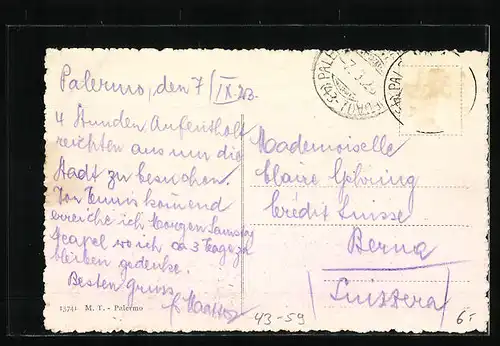 Palermo, den 7/IX.23.
4 Stunden Aufenthalt
reichten aus um die
Stadt zu besuchen.
Von Tunis kommend
erreiche ich Morgen Samstag
Neapel wo ich ca 3 Tage zu
bleiben gedenke.
Besten Gruss
Mademoiselle
Claire
Crédit Suisse
Berna
(Suizzera)
13741 M. T. - Palermo
43-59
6.-